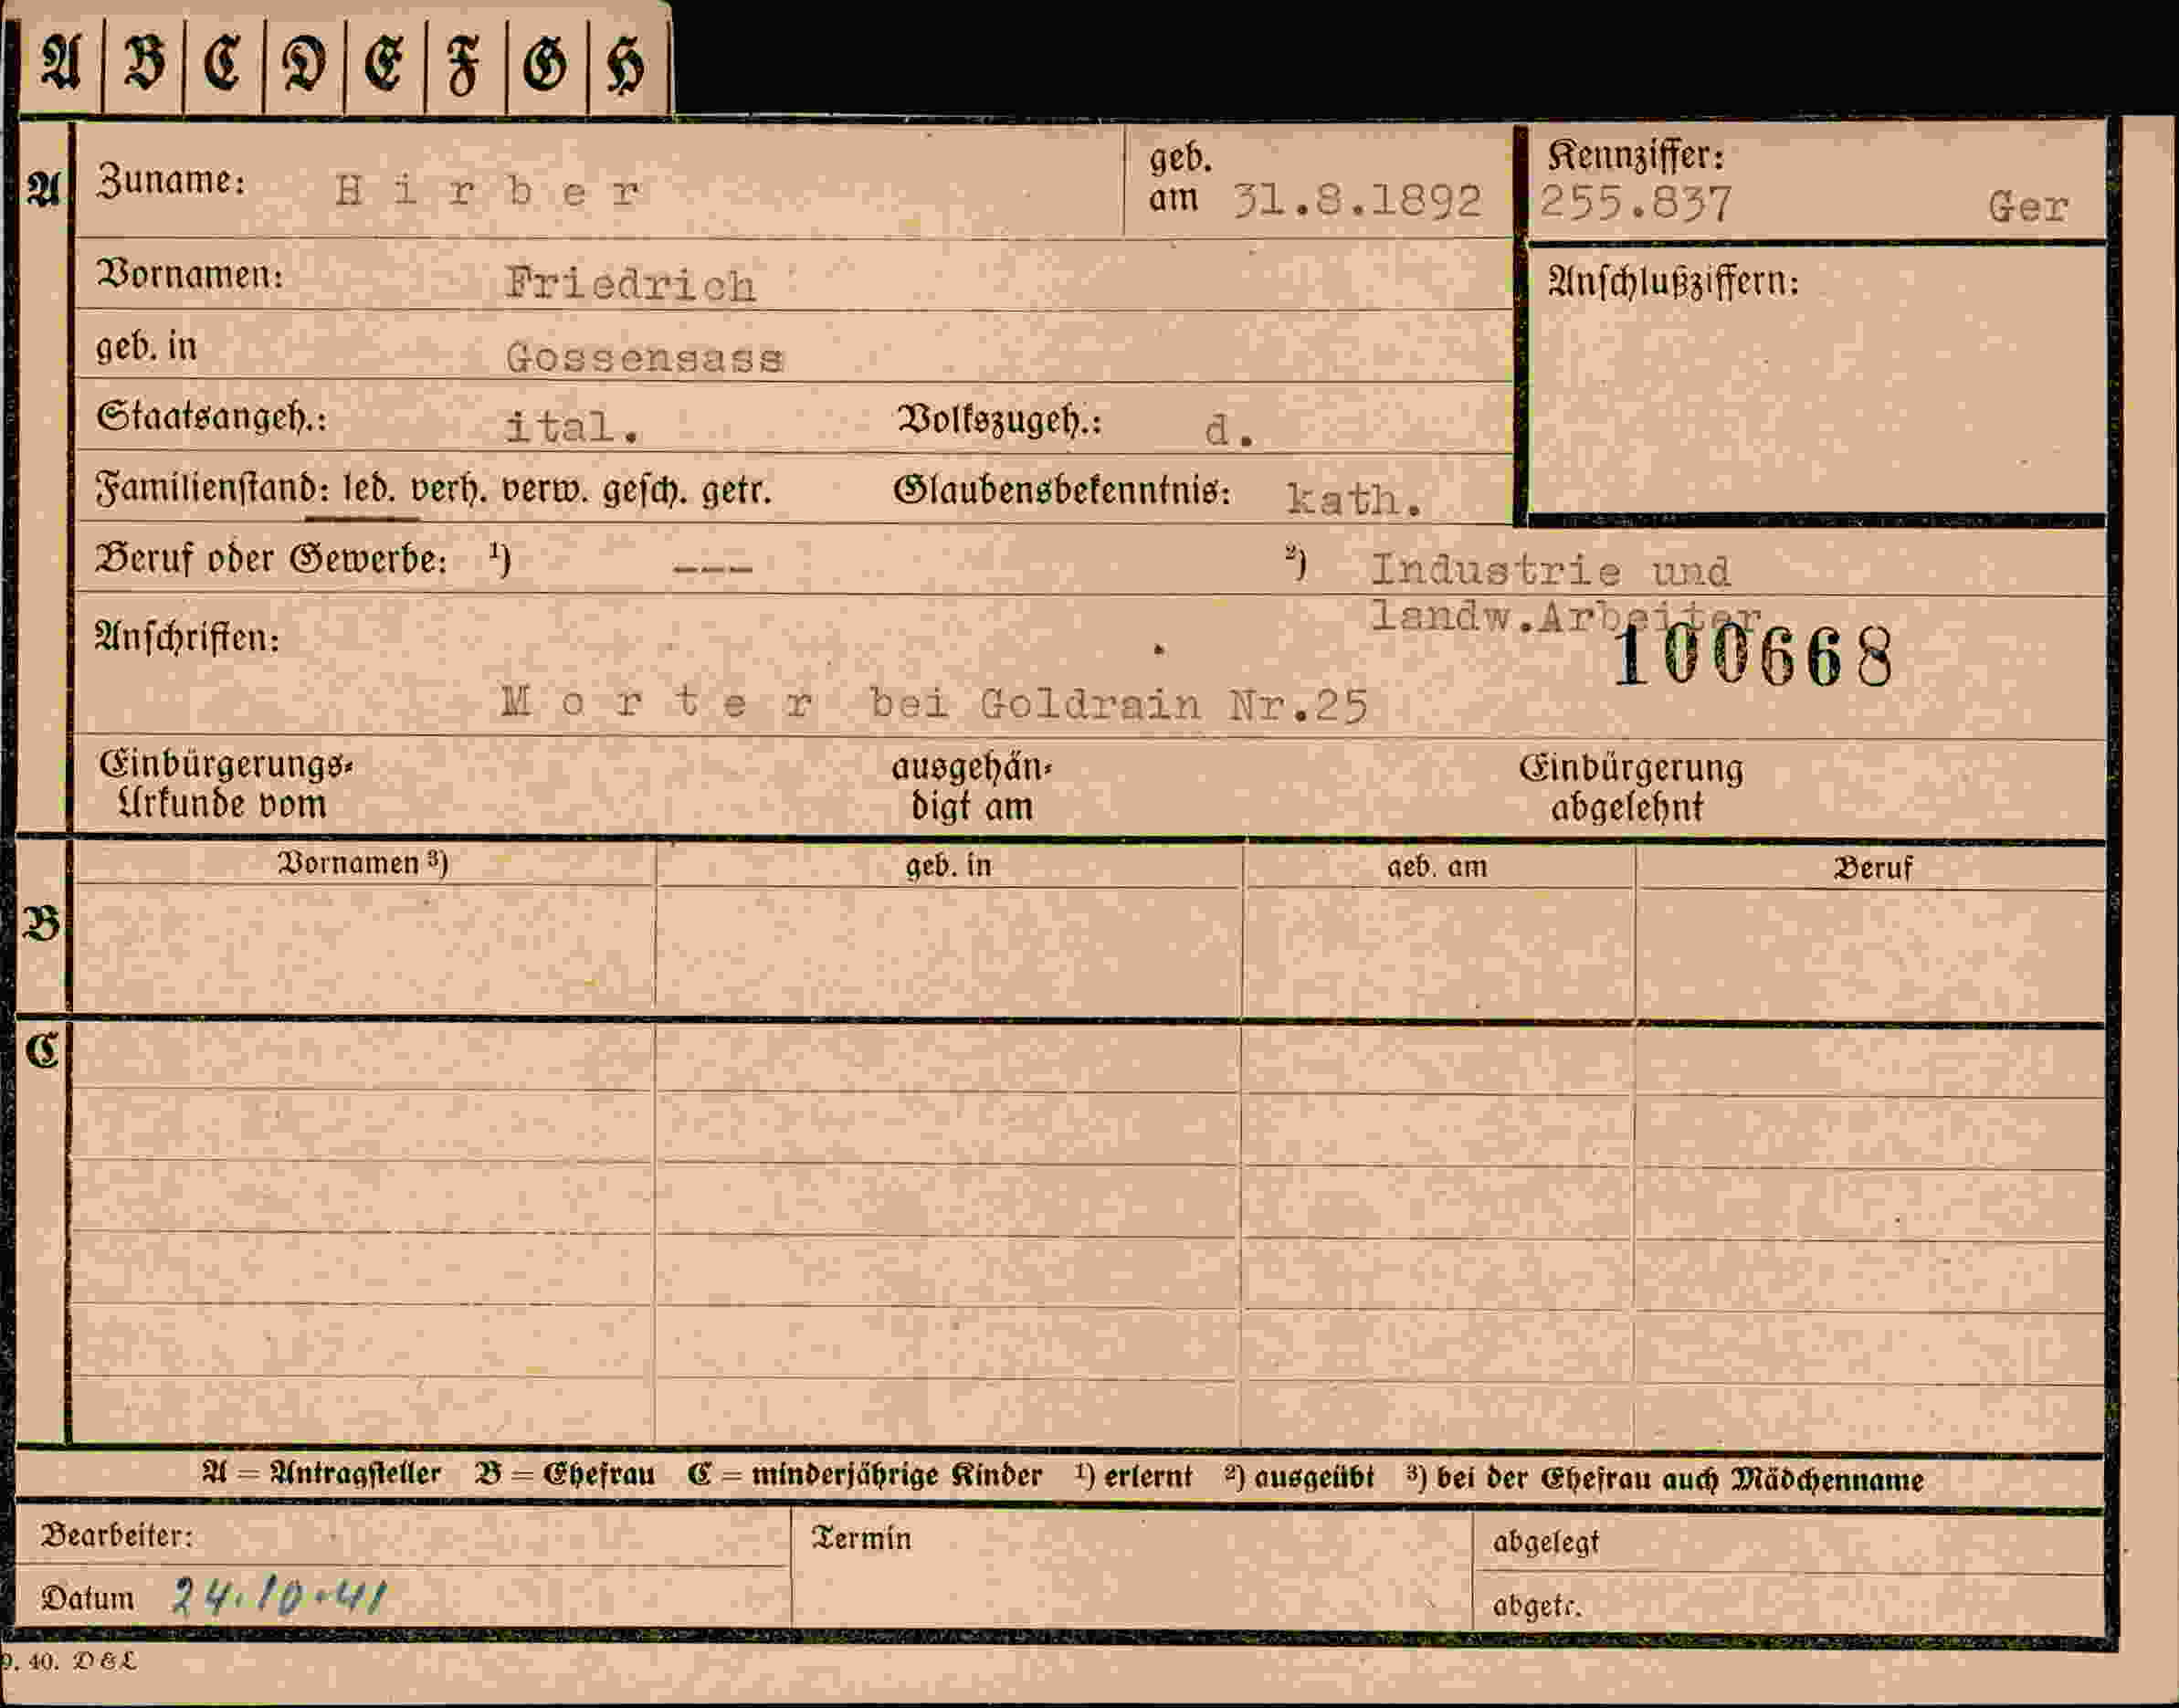 A B C D E F G H
A Zuname: Hirber geb. am 31.8.1892 Kennziffer: 255.837 Ger
Vornamen: Friedrich Anschlußziffern:
geb. in Gossensass
Staatsangeh.: ital. Volkszugeh.: d.
Familienstand: led. verh. verw. gesch. getr. Glaubensbekenntnis: kath.
Beruf oder Gewerbe: ¹) --- ²) Industrie und
landw.Arbeiter
Anschriften: 100668
Morter bei Goldrain Nr.25
Einbürgerungs- ausgehän- Einbürgerung
Urkunde vom digt am abgelehnt
Vornamen ³) geb. in geb. am Beruf
B
C
A = Antragsteller B = Ehefrau C = minderjährige Kinder ¹) erlernt ²) ausgeübt ³) bei der Ehefrau auch Mädchenname
Bearbeiter: Termin abgelegt
Datum 24.10.41 abgetr.
9. 40. D & L